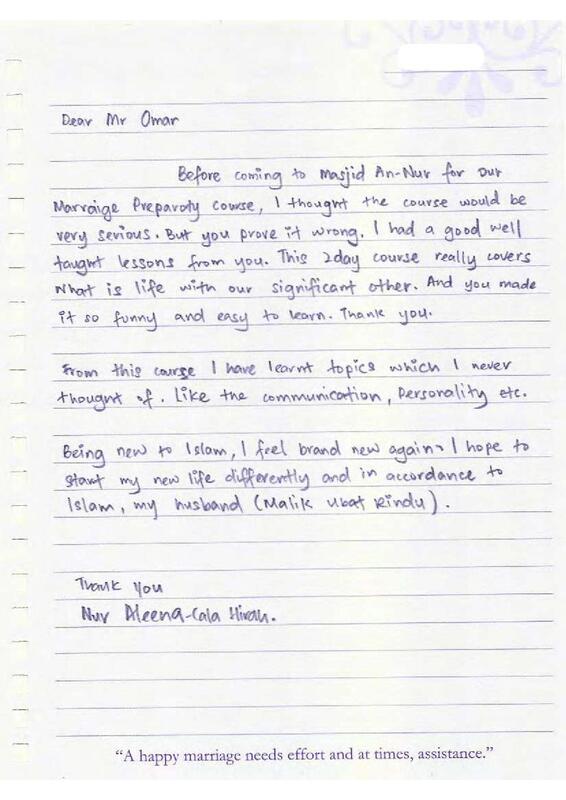 Dear Mr Omar
Before coming to Masjid An-Nur for our
Marraige Preparaty course, I thought the course would be
very serious. But you prove it wrong. I had a good well
taught lessons from you. This 2day course really covers
what is life with our significant other. And you made
it so funny and easy to learn. Thank you.
From this course I have learnt topics which I never
thought of. Like the communication, Personality etc.
Being new to Islam, I feel brand new again. I hope to
start my new life differently and in accordance to
Islam, my husband (Malik Ubat Rindu).
Thank you
Nur Aleena-Cala Hirah.
“A happy marriage needs effort and at times, assistance.”